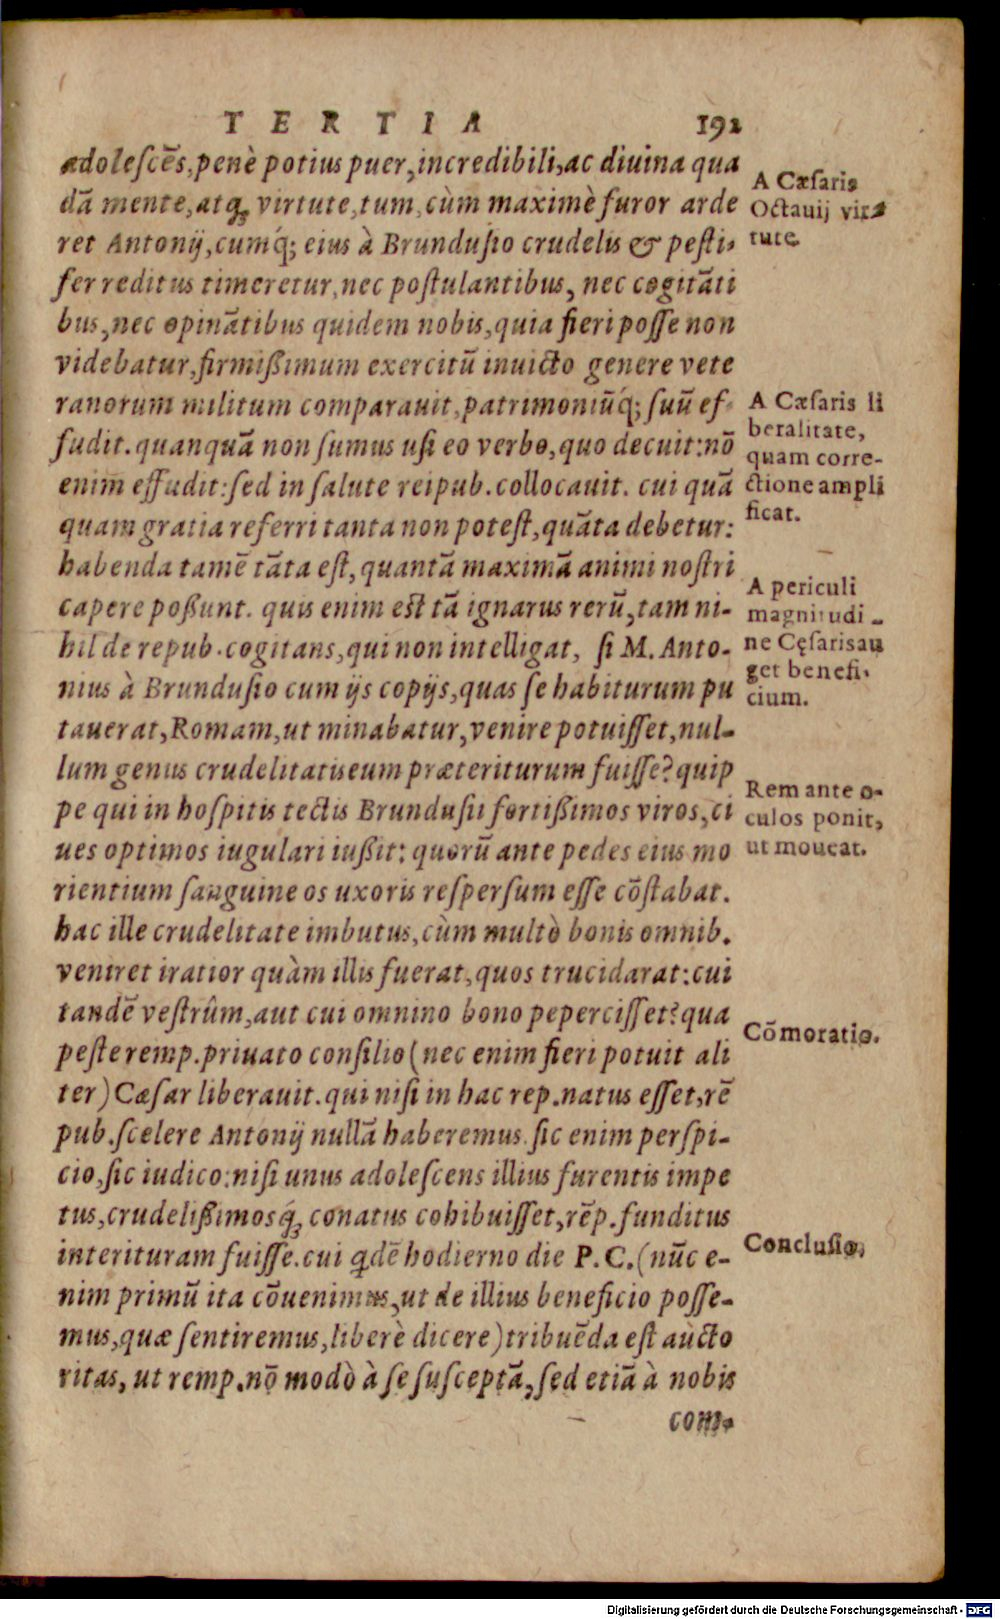 TERTIA 192
adolescēs, penè potius puer, incredibili, ac diuina qua
dā mente, atq́; virtute, tum, cùm maximè furor arde
ret Antonij, cumq́; eius à Brundusio crudelis & pesti-
fer reditus timeretur, nec postulantibus, nec cogitāti
bus, nec opinātibus quidem nobis, quia fieri posse non
videbatur, firmißimum exercitū inuicto genere vete
ranorum militum comparauit, patrimoniūq́; suū ef-
fudit. quanquā non sumus usi eo verbo, quo decuit: nō
enim effudit: sed in salute reipub. collocauit. cui quā
quam gratia referri tanta non potest, quāta debetur:
habenda tamē tāta est, quantā maximā animi nostri
capere poßunt. quis enim est tā ignarus rerū, tam ni-
hil de repub. cogitans, qui non intelligat, si M. Anto-
nius à Brundusio cum ijs copijs, quas se habiturum pu
tauerat, Romam, ut minabatur, venire potuisset, nul-
lum genus crudelitatis eum præteriturum fuisse? quip
pe qui in hospitis tectis Brundusii fortißimos viros, ci
ues optimos iugulari iußit: quorū ante pedes eius mo
rientium sanguine os uxoris respersum esse cōstabat.
hac ille crudelitate imbutus, cùm multò bonis omnib.
veniret iratior quàm illis fuerat, quos trucidarat: cui
tandē vestrûm, aut cui omnino bono pepercisset? qua
peste remp. priuato consilio (nec enim fieri potuit ali
ter) Cæsar liberauit. qui nisi in hac rep. natus esset, rē
pub. scelere Antonij nullā haberemus. sic enim perspi-
cio, sic iudico: nisi unus adolescens illius furentis impe
tus, crudelißimosq́; conatus cohibuisset, rēp. funditus
interituram fuisse. cui qdē hodierno die P.C. (nūc e-
nim primū ita cōuenimus, ut de illius beneficio posse-
mus, quæ sentiremus, liberè dicere) tribuēda est aucto
ritas, ut remp. nō modò à se susceptā, sed etiā à nobis
com-
A Cæsaris
Octauij vir-
tute.
A Cæsaris li
beralitate,
quam corre-
ctione ampli
ficat.
A periculi
magnitudi-
ne Cęsaris au
get benefi-
cium.
Rem ante o-
culos ponit,
ut moueat.
Cōmoratio.
Conclusio,
Digitalisierung gefördert durch die Deutsche Forschungsgemeinschaft - DFG